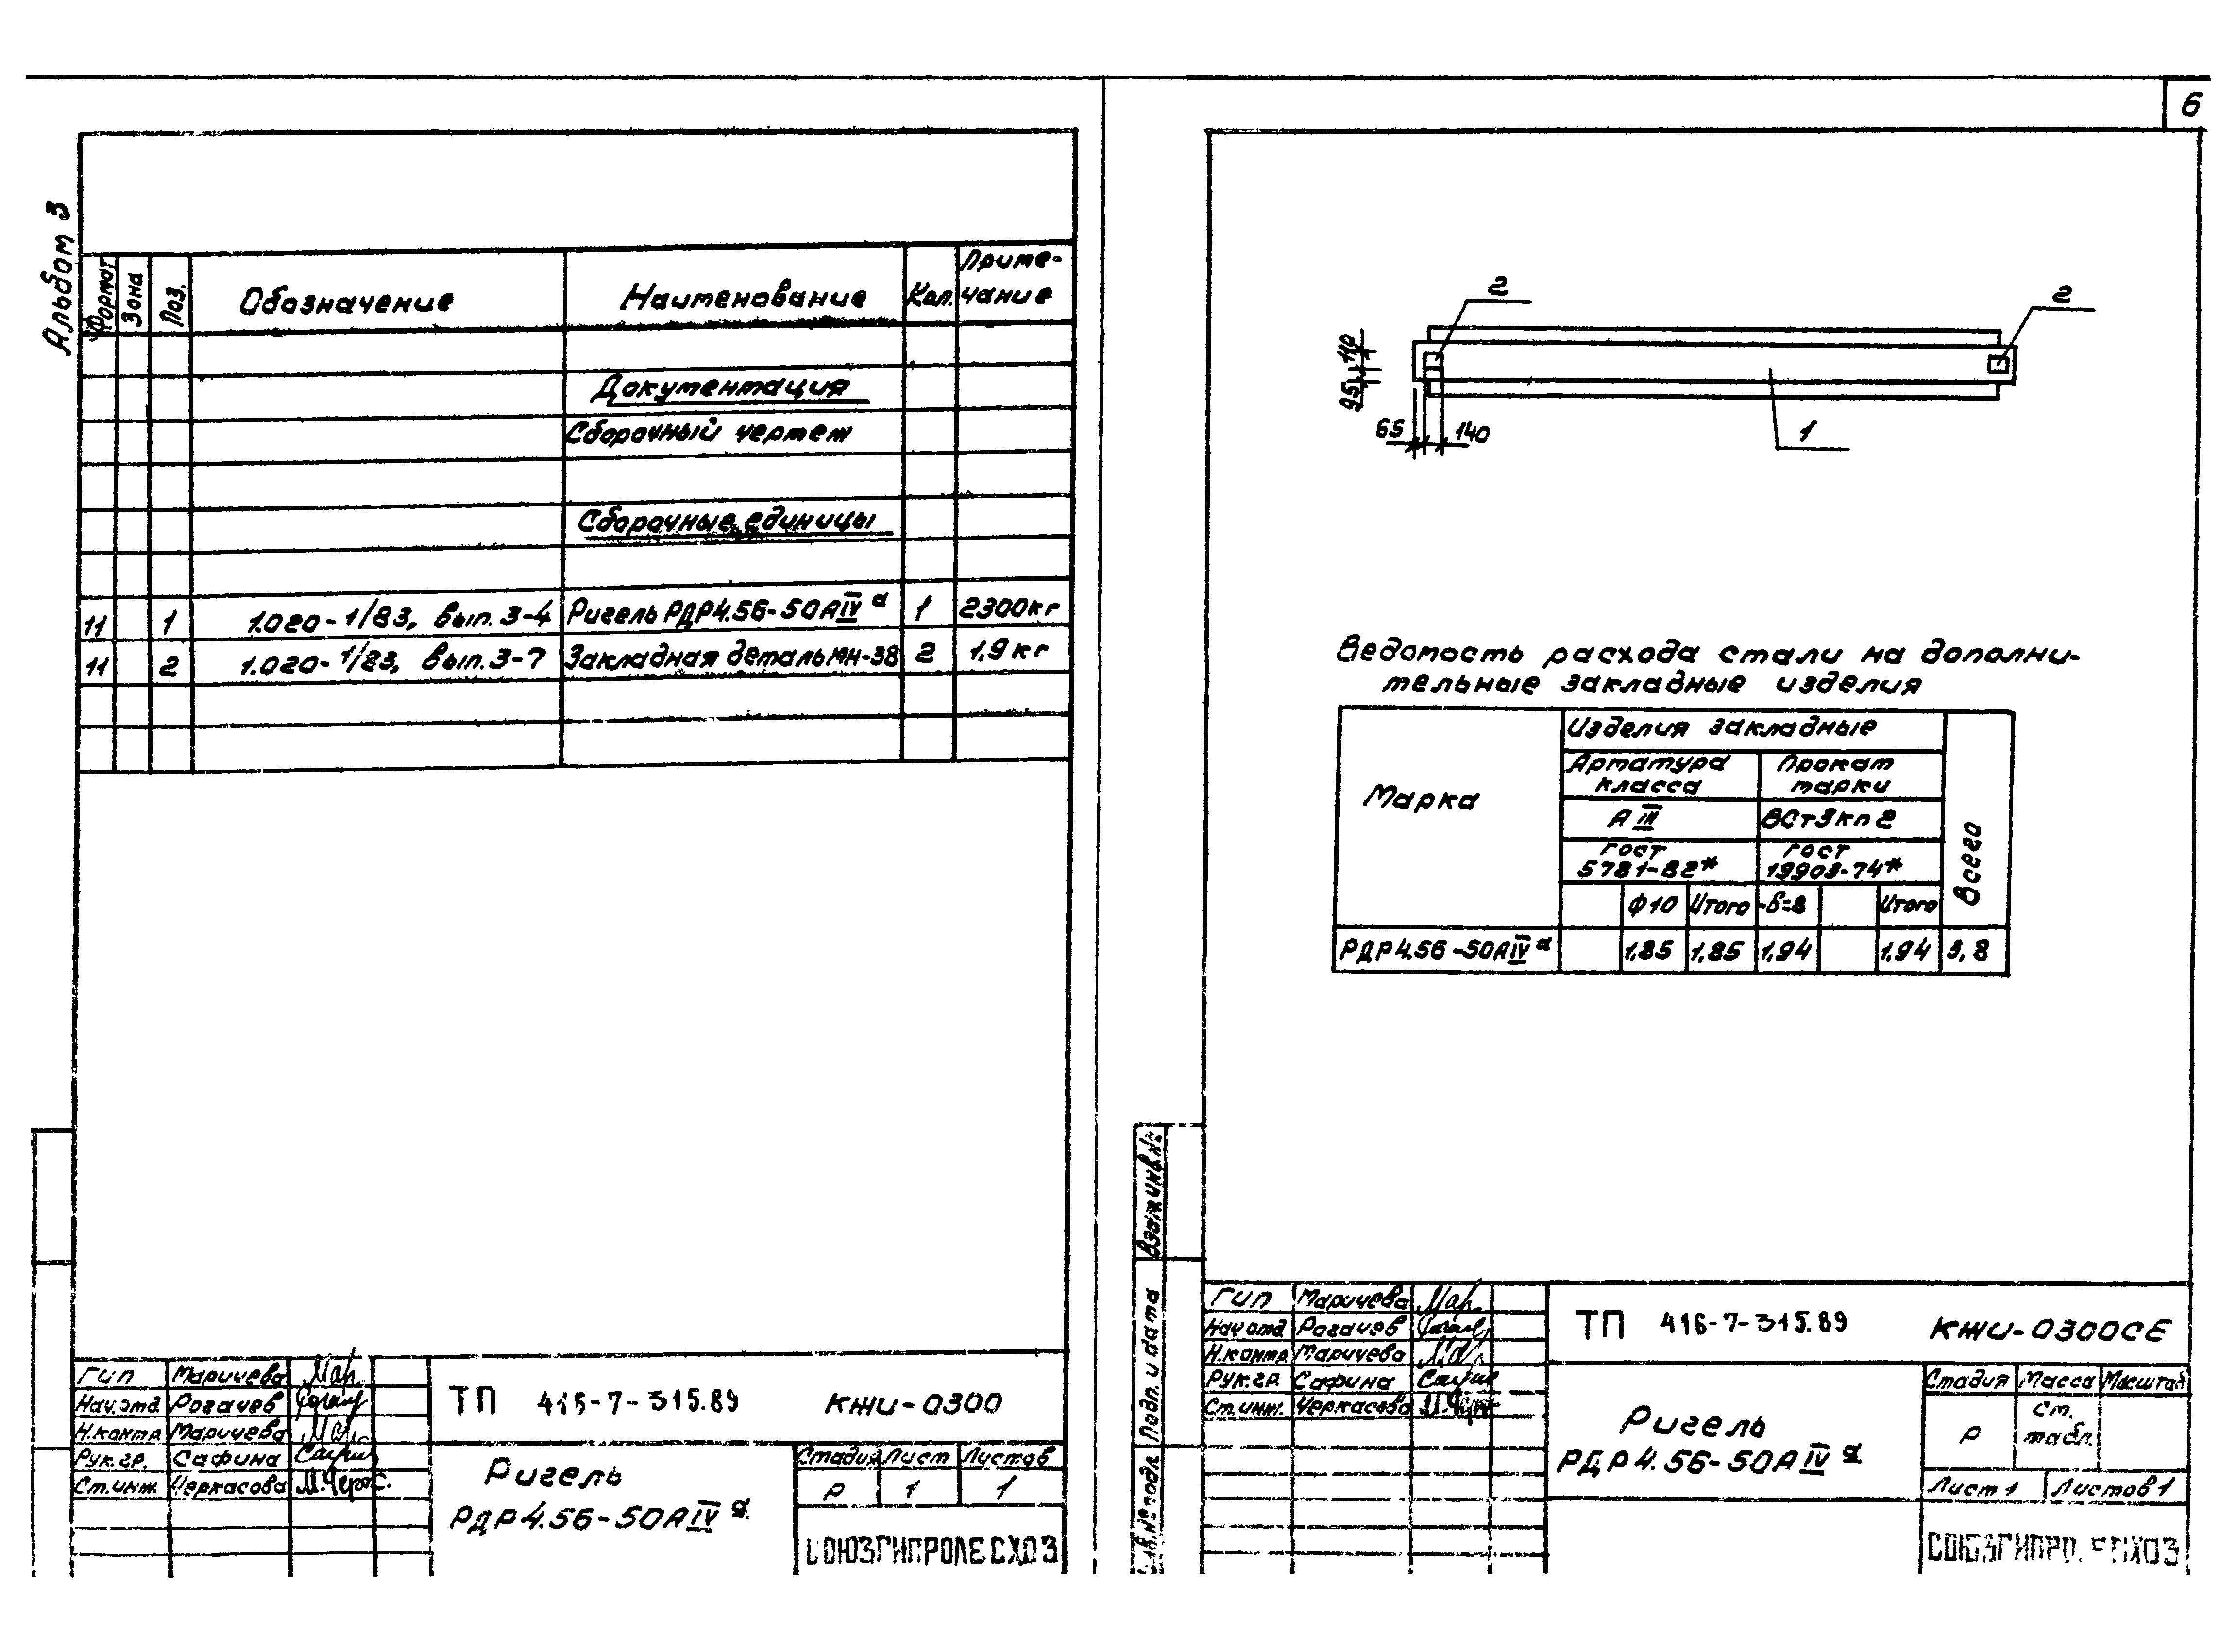 6
Альбом 3
Формат Зона Поз. Обозначение Наименование Кол. Приме-
чание
Документация
Сборочный чертеж
Сборочные единицы
11 1 1.020-1/83, вып. 3-4 Ригель РДР4.56-50АIV а 1 2300кг
11 2 1.020-1/83, вып. 3-7 Закладная деталь МН-38 2 1,9 кг
Гип Маричева
Нач.отд. Рогачев
Н.контр. Маричева
Рук.гр. Сафина
Ст.инж. Черкасова
ТП 416-7-315.89 КЖИ-0300
Ригель
РДР4.56-50АIV а
Стадия Лист Листов
Р 1 1
СОЮЗГИПРОЛЕСХОЗ
2
2
110
95
65 140
1
Ведомость расхода стали на дополни-
тельные закладные изделия
Марка
Изделия закладные
Арматура
класса
Прокат
марки
АIII ВСт3кп2
ГОСТ
5781-82*
ГОСТ
19903-74*
Всего
Ф10 Итого -δ=8 Итого
РДР4.56-50АIV а 1,85 1,85 1,94 1,94 3,8
Взам.инв.№
Подп. и дата
Инв.№подл.
Гип Маричева
Нач.отд. Рогачев
Н.контр. Маричева
Рук.гр. Сафина
Ст.инж. Черкасова
ТП 416-7-315.89 КЖИ-0300СБ
Ригель
РДР4.56-50АIV а
Стадия Масса Масштаб
Р
ст.
табл.
Лист 1 Листов 1
СОЮЗГИПРОЛЕСХОЗ